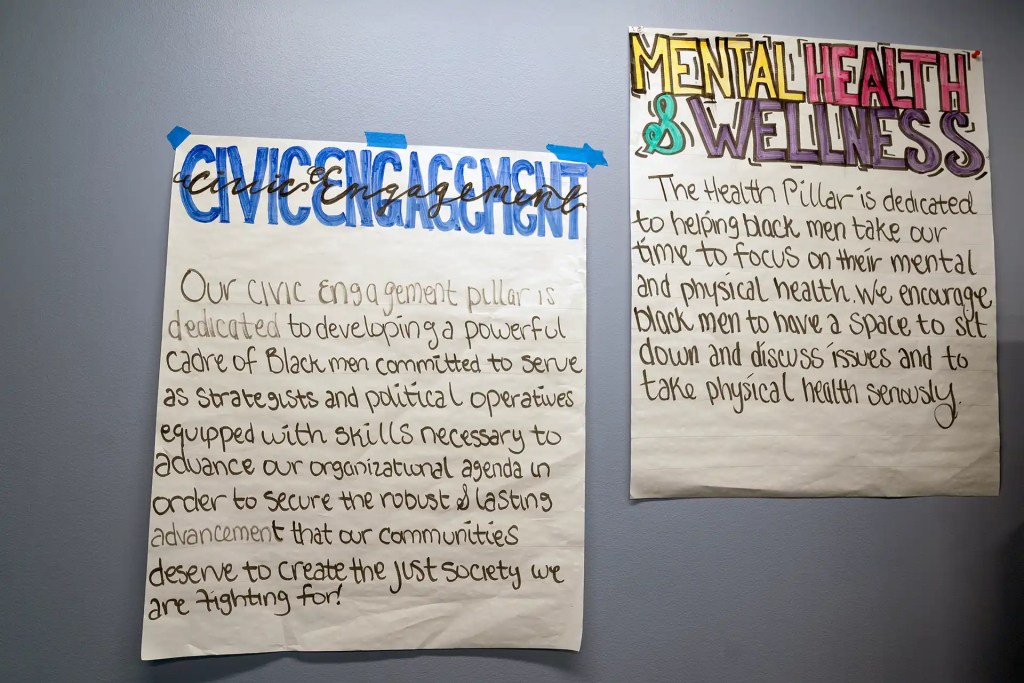 CIVIC ENGAGEMENT
"Civic Engagement
Our civic engagement pillar is
dedicated to developing a powerful
cadre of Black men committed to serve
as strategists and political operatives
equipped with skills necessary to
advance our organizational agenda in
order to secure the robust & lasting
advancement that our communities
deserve to create the just society we
are fighting for!
MENTAL HEALTH
& WELLNESS
The Health Pillar is dedicated
to helping black men take our
time to focus on their mental
and physical health. We encourage
black men to have a space to sit
down and discuss issues and to
take physical health seriously.